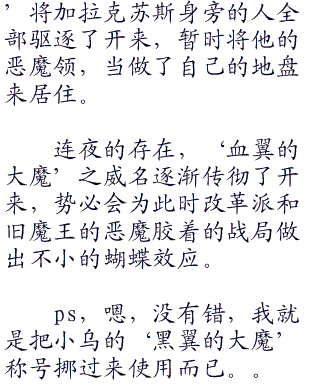 ’将加拉克苏斯身旁的人全
部驱逐了开来，暂时将他的
恶魔领，当做了自己的地盘
来居住。
连夜的存在，‘血翼的
大魔’之威名逐渐传彻了开
来，势必会为此时改革派和
旧魔王的恶魔胶着的战局做
出不小的蝴蝶效应。
ps，嗯，没有错，我就
是把小乌的‘黑翼的大魔’
称号挪过来使用而已。。